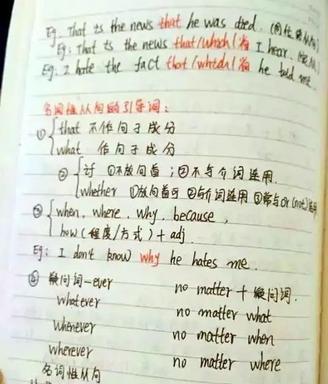 Eg. That is the news that he was died. (同位语从句)
Eg: That is the news that/which/省 I hear.
Eg: I hate the fact that/which/省 he told me.
名词性从句的引导词:
① that 不作句子成分
what 作句子成分
② if ①不放句首; ②不与介词连用.
whether ①放句首可 ②与介词连用 ③常与or(not)连用
③ when, where, why, because,
how(程度/方式)+adj
Eg: I don't know why he hates me.
④ 疑问词-ever no matter + 疑问词.
whatever no matter what
whenever no matter when
wherever no matter where
名词性从句